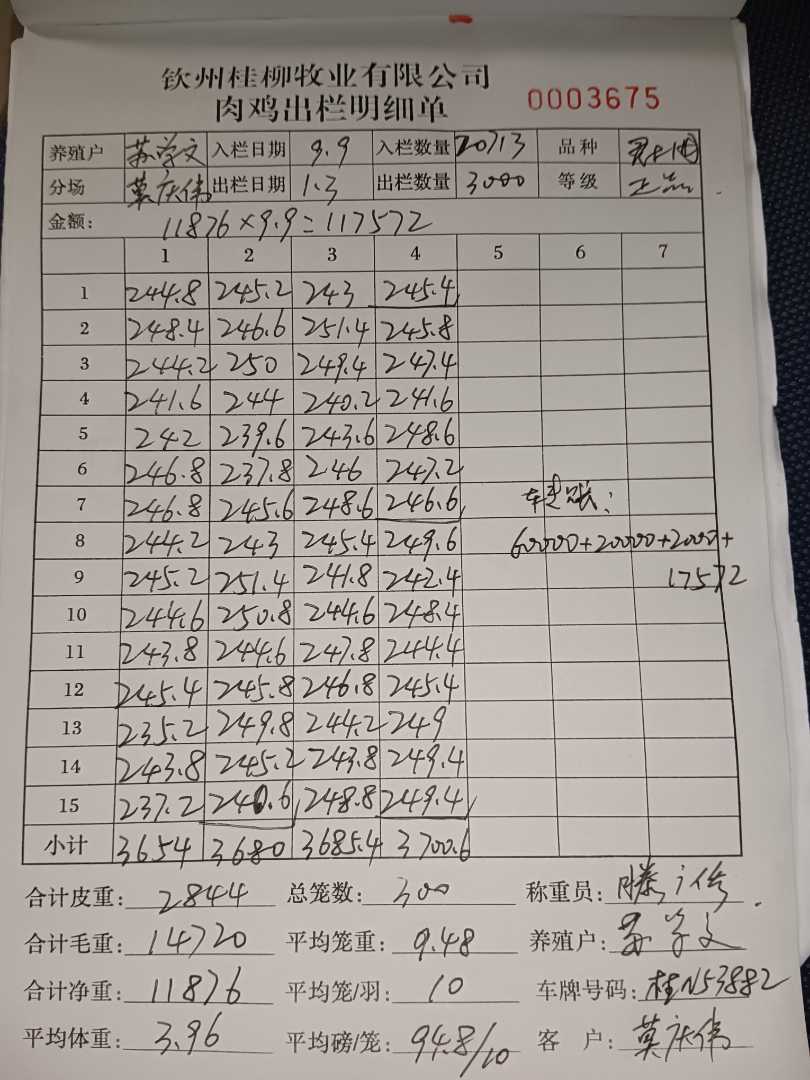 钦州桂柳牧业有限公司
肉鸡出栏明细单 0003675
养殖户 苏学文 入栏日期 9.9 入栏数量 20713 品种
分场 莫庆伟 出栏日期 1.3 出栏数量 3000 等级 正品
金额: 11876×9.9=117572
1 2 3 4 5 6 7
1 244.8 245.2 243 245.4
2 248.4 246.6 251.4 245.8
3 244.2 250 249.4 247.4
4 241.6 244 240.2 241.6
5 242 239.6 243.6 248.6
6 246.8 237.8 246 247.2
7 246.8 245.6 248.6 246.6
8 244.2 243 245.4 249.6 60000+20000+20000+
9 245.2 251.4 241.8 242.4 17572
10 244.6 250.8 244.6 248.4
11 243.8 244.6 247.8 244.4
12 245.4 245.8 246.8 245.4
13 235.2 249.8 244.2 249
14 243.8 245.2 243.8 249.4
15 237.2 240.6 248.8 249.4
小计 3654 3680 3685.4 3700.6
合计皮重: 2844 总笼数: 300 称重员:
合计毛重: 14720 平均笼重: 9.48 养殖户: 苏学文
合计净重: 11876 平均笼/羽: 10 车牌号码: 桂N53882
平均体重: 3.96 平均磅/笼: 94.8/10 客户: 莫庆伟